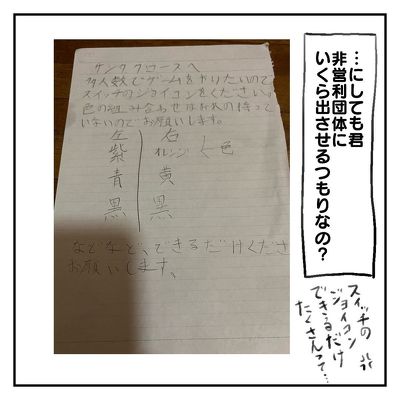 …にしても君
非営利団体に
いくら出させるつもりなの？
サンタクロースへ
多人数でゲームをやりたいので
スイッチのジョイコンをください。
色の組み合わせはお人の持って
いないのでお願いします。
左 右
紫 オレンジ 色
青 黄
黒 黒
などなど、できるだけくださ
お願いします、
スイッチの
ジョイコン
できるだけ
たくさんって…